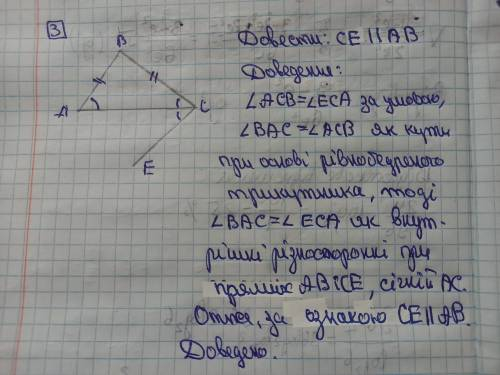 3
B
A
C
E
Довести: CE || AB
Доведення:
∠ACB=∠ECA за умовою,
∠BAC=∠ACB як кути
при основі рівнобедреного
трикутника, тоді
∠BAC=∠ECA як внут-
рішні різносторонні при
прямих AB і CE, січній AC.
Отже, за ознакою CE || AB.
Доведено.